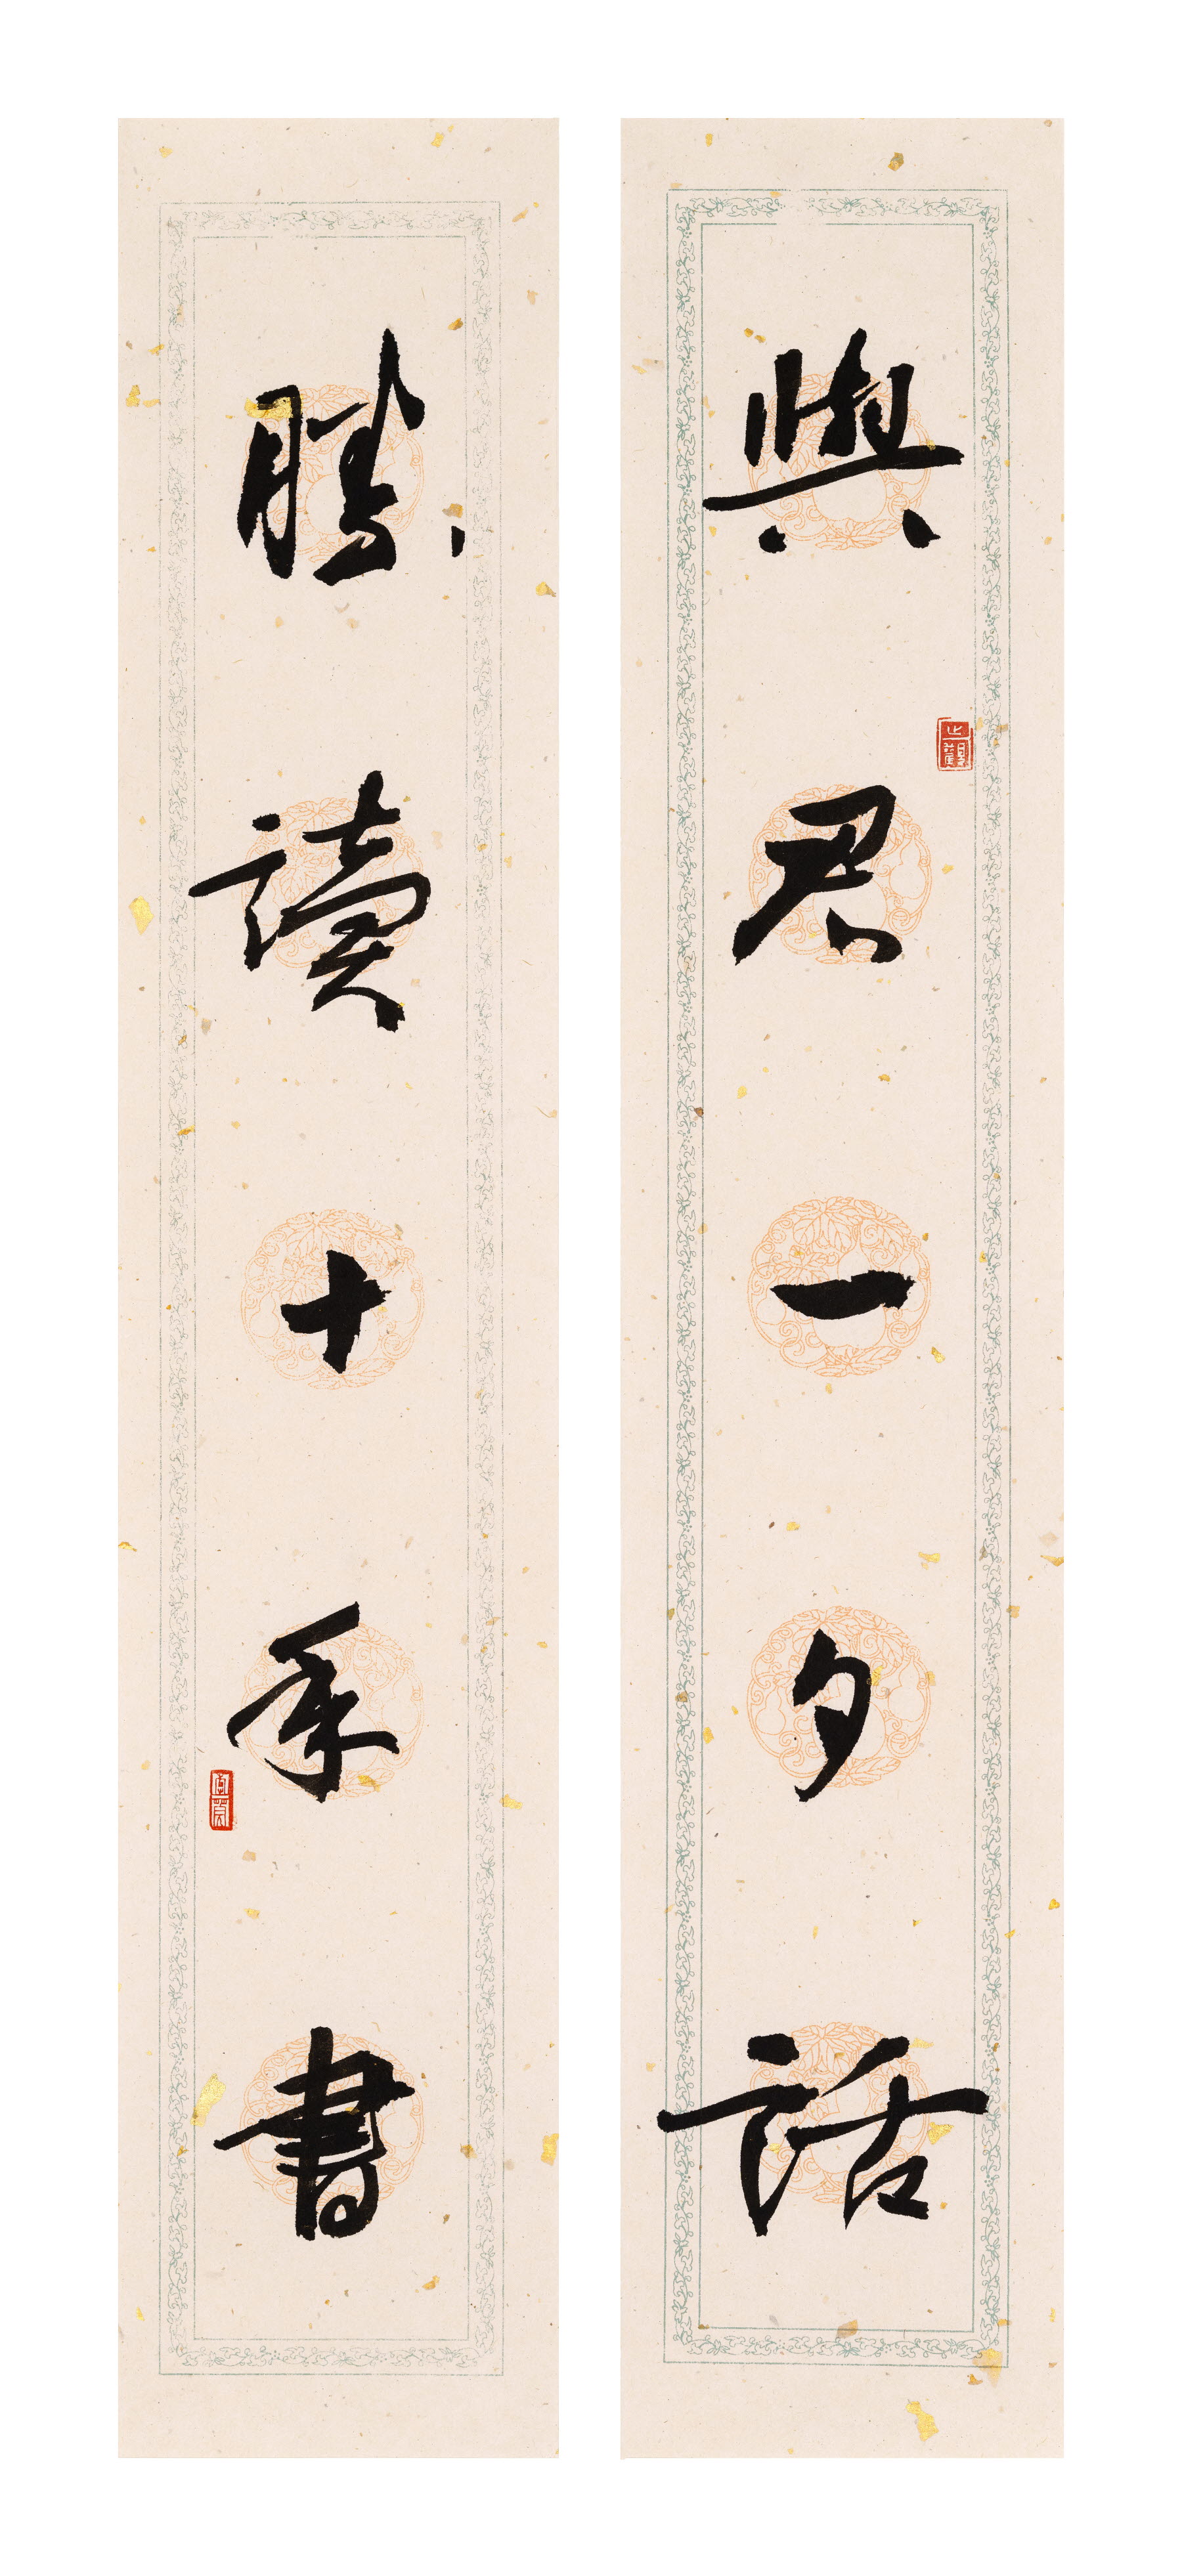 與君一夕話
勝讀十年書